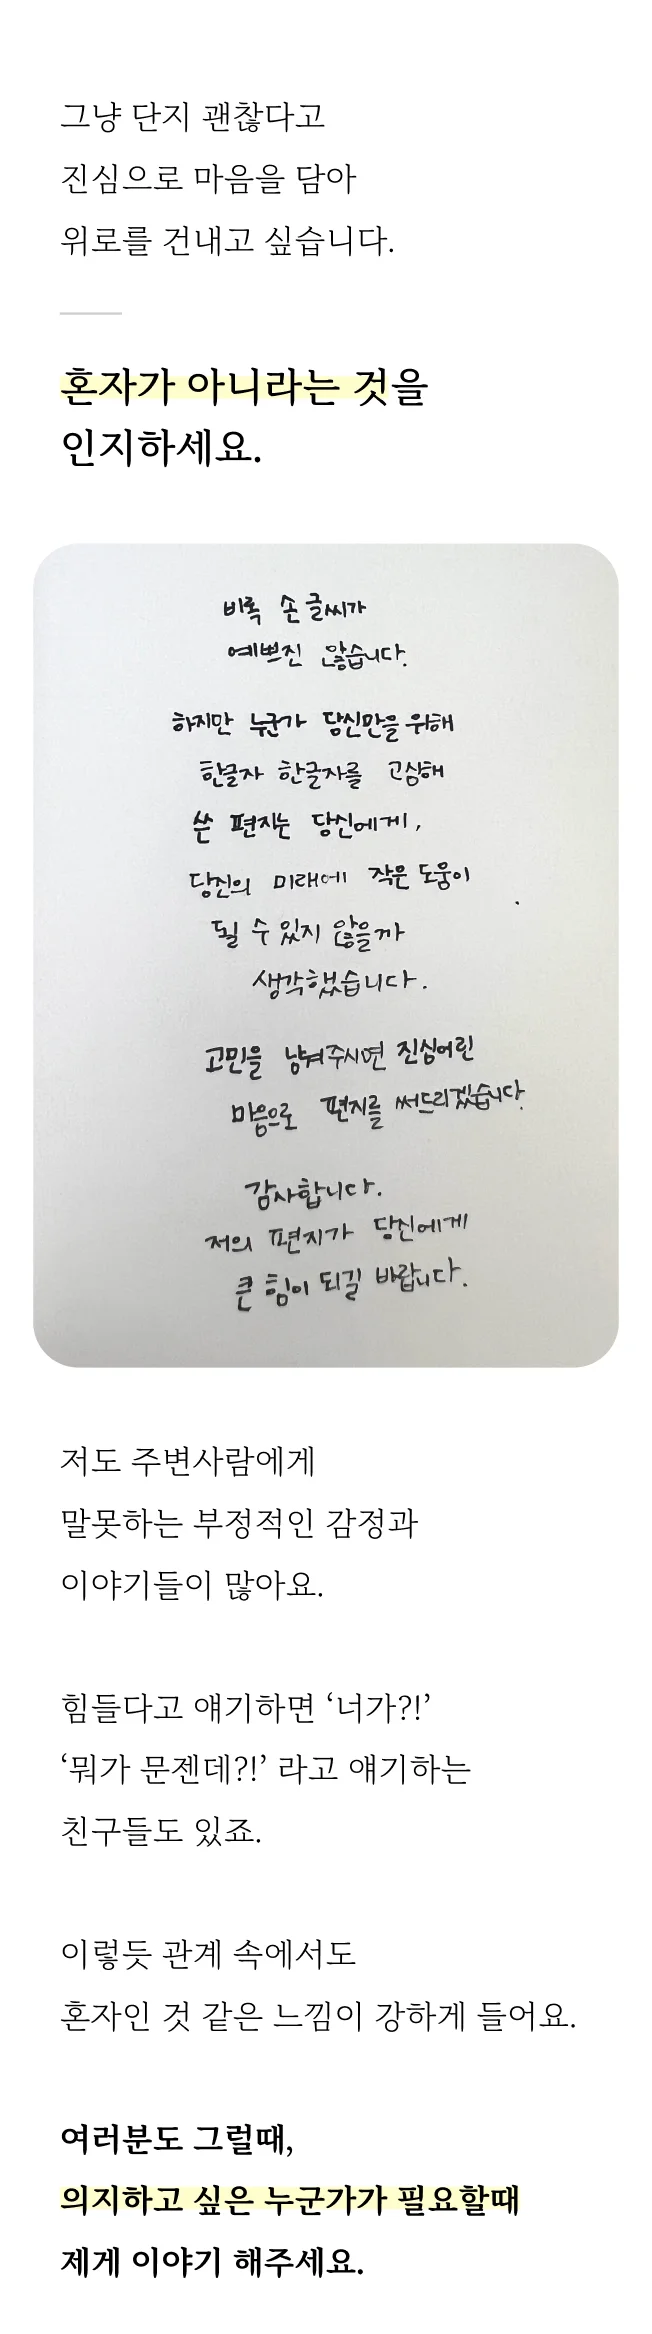 그냥 단지 괜찮다고
진심으로 마음을 담아
위로를 건내고 싶습니다.
혼자가 아니라는 것을
인지하세요.
비록 손 글씨가
예쁘진 않습니다.
하지만 누군가 당신만을 위해
한글자 한글자를 고심해
쓴 편지는 당신에게,
당신의 미래에 작은 도움이
될 수 있지 않을까
생각했습니다.
고민을 남겨주시면 진심어린
마음으로 편지를 써드리겠습니다.
감사합니다.
저의 편지가 당신에게
큰 힘이 되길 바랍니다.
저도 주변사람에게
말못하는 부정적인 감정과
이야기들이 많아요.
힘들다고 얘기하면 ‘너가?!’
‘뭐가 문젠데?!’ 라고 얘기하는
친구들도 있죠.
이렇듯 관계 속에서도
혼자인 것 같은 느낌이 강하게 들어요.
여러분도 그럴때,
의지하고 싶은 누군가가 필요할때
제게 이야기 해주세요.